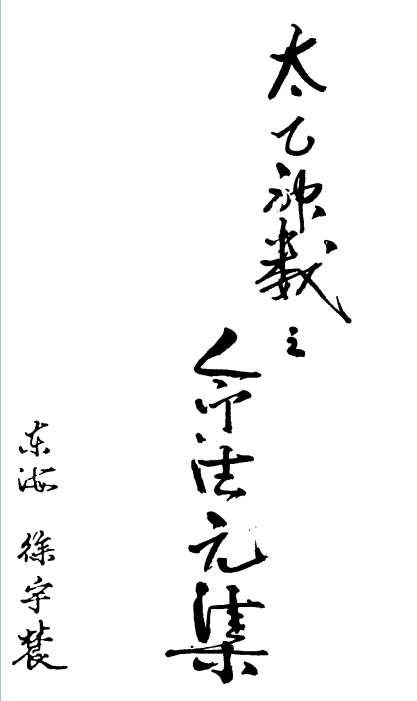 太乙神数之
命法元集
东海 徐宇辳